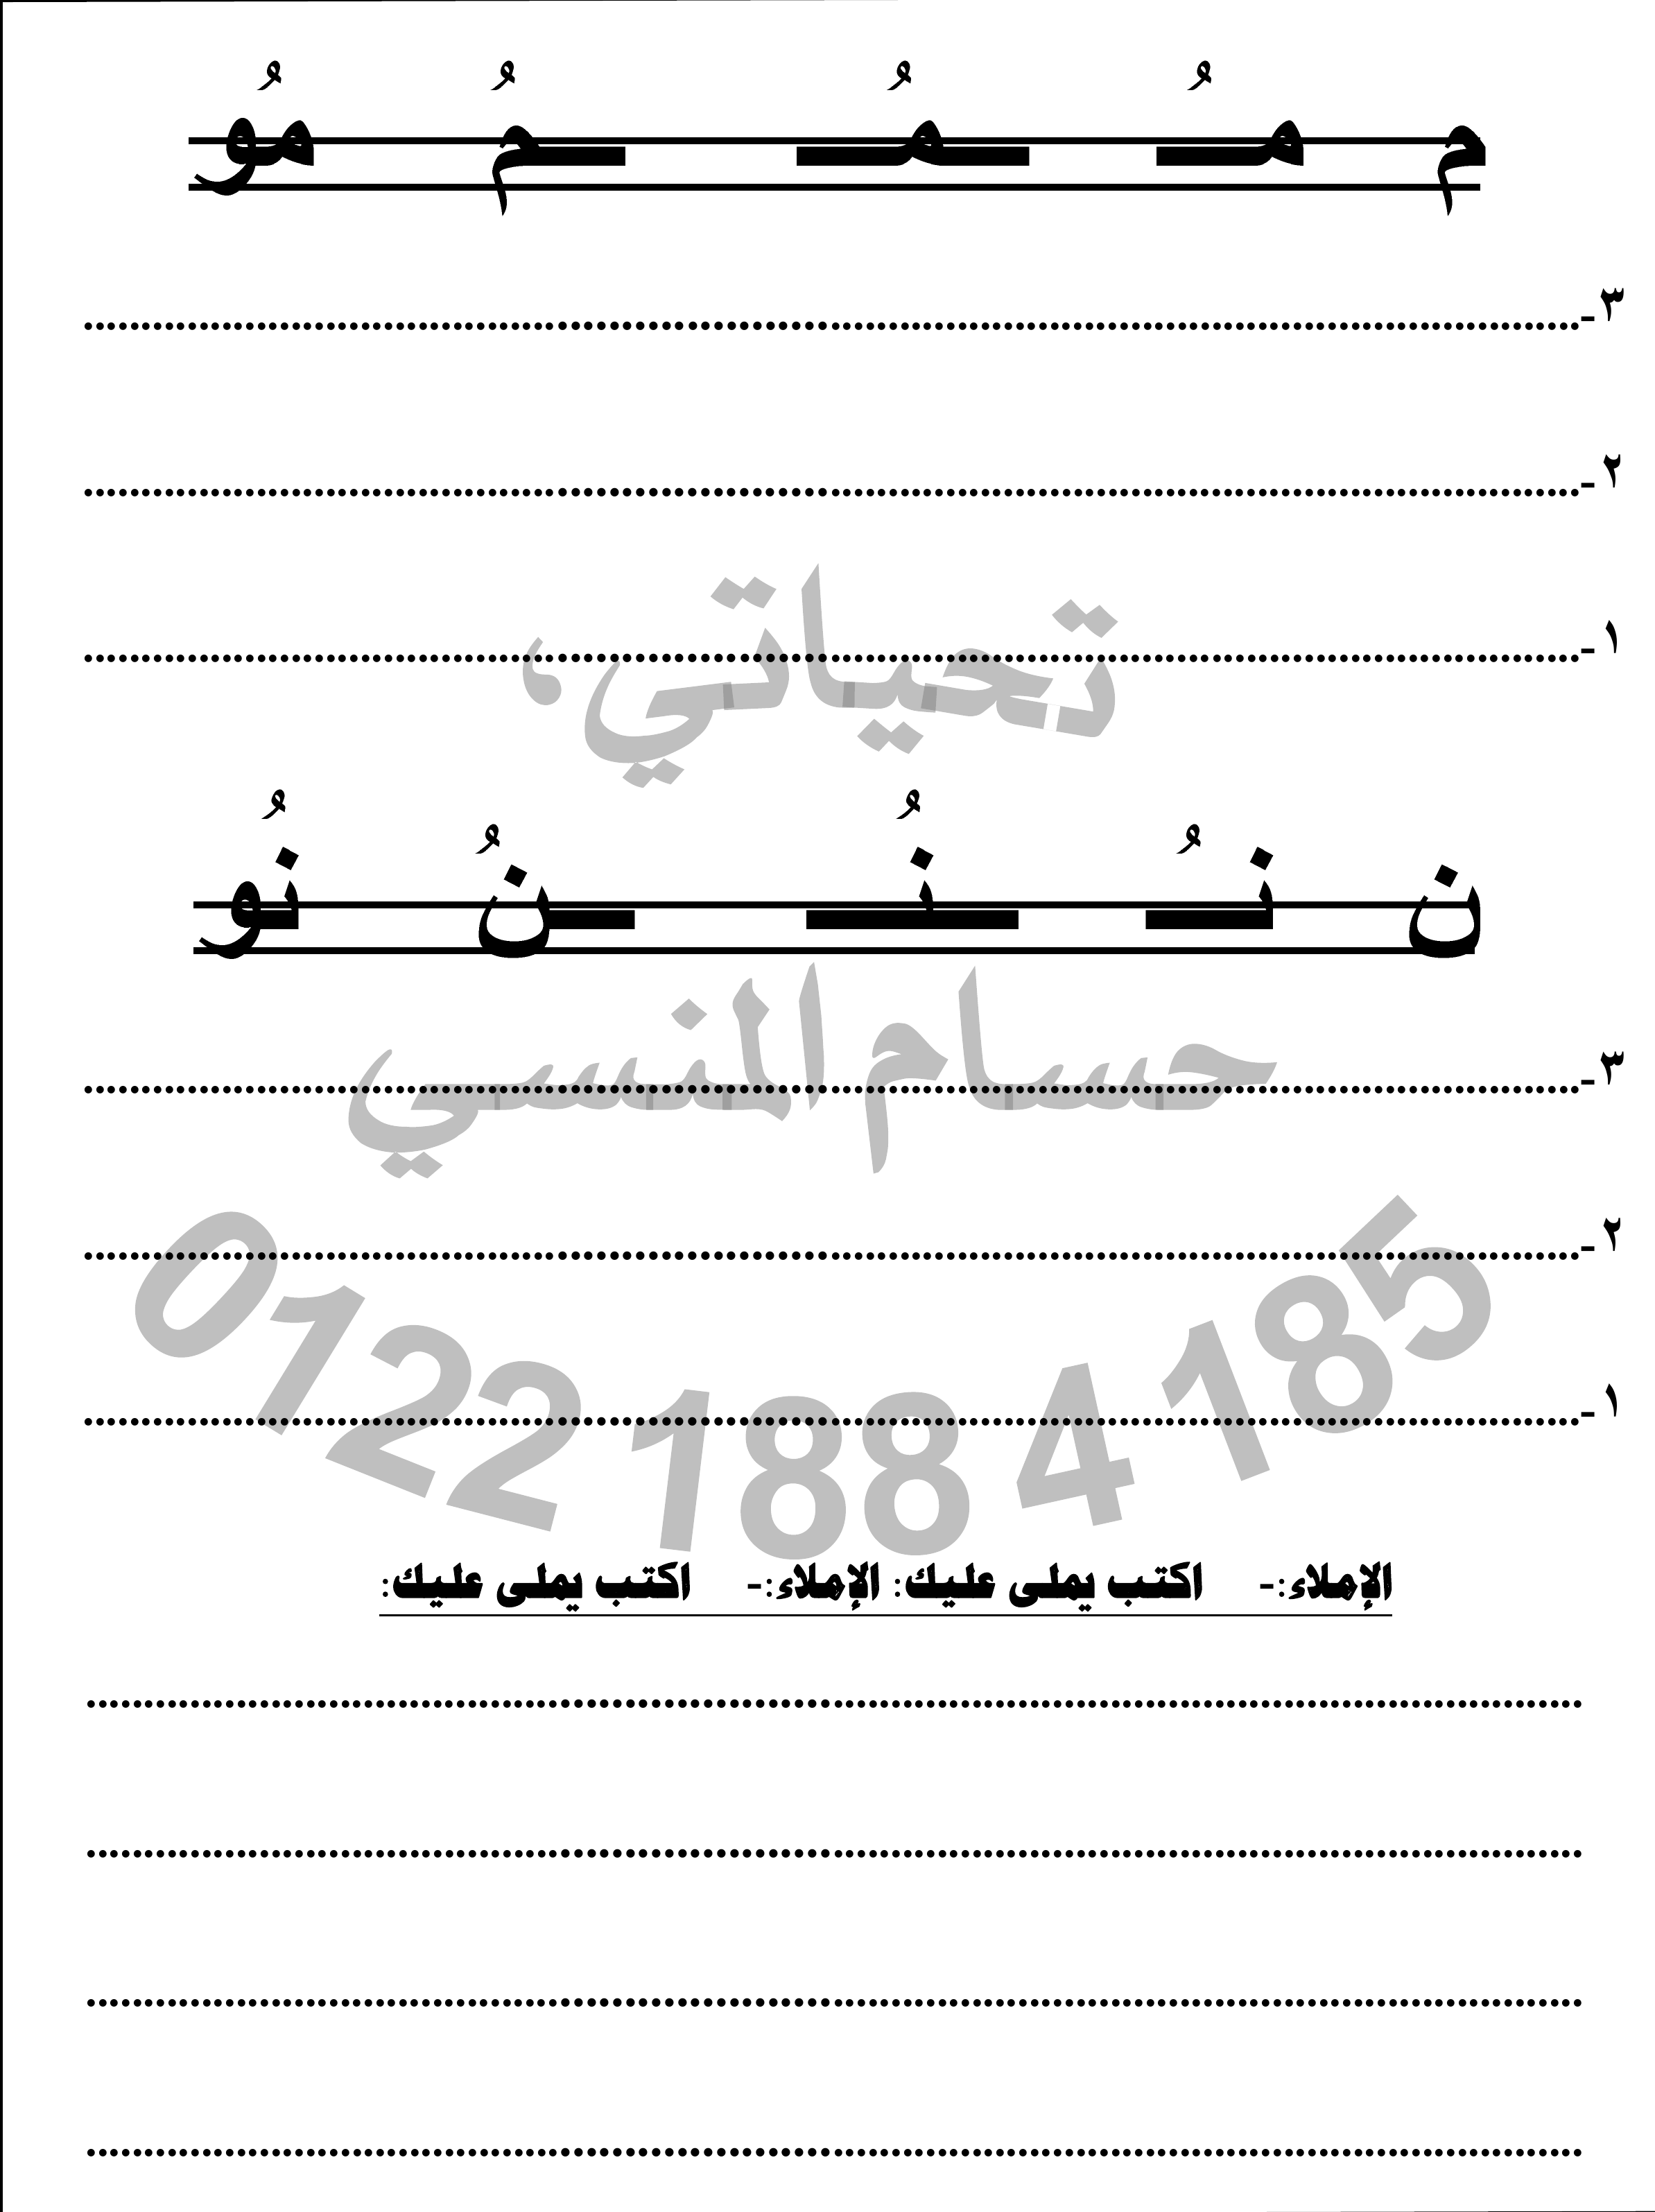 م مُـ ـمُـ ـمُ مُو
٣-........................................
٢-........................................
١-........................................
تحياتي،
ن نُـ ـنُـ ـنُ نُو
حسام المنسي
٣-........................................
٢-........................................
0122 188 4 185
١-........................................
الإملاء:- اكتب يملى عليك: الإملاء:- اكتب يملى عليك:
........................................
........................................
........................................
........................................